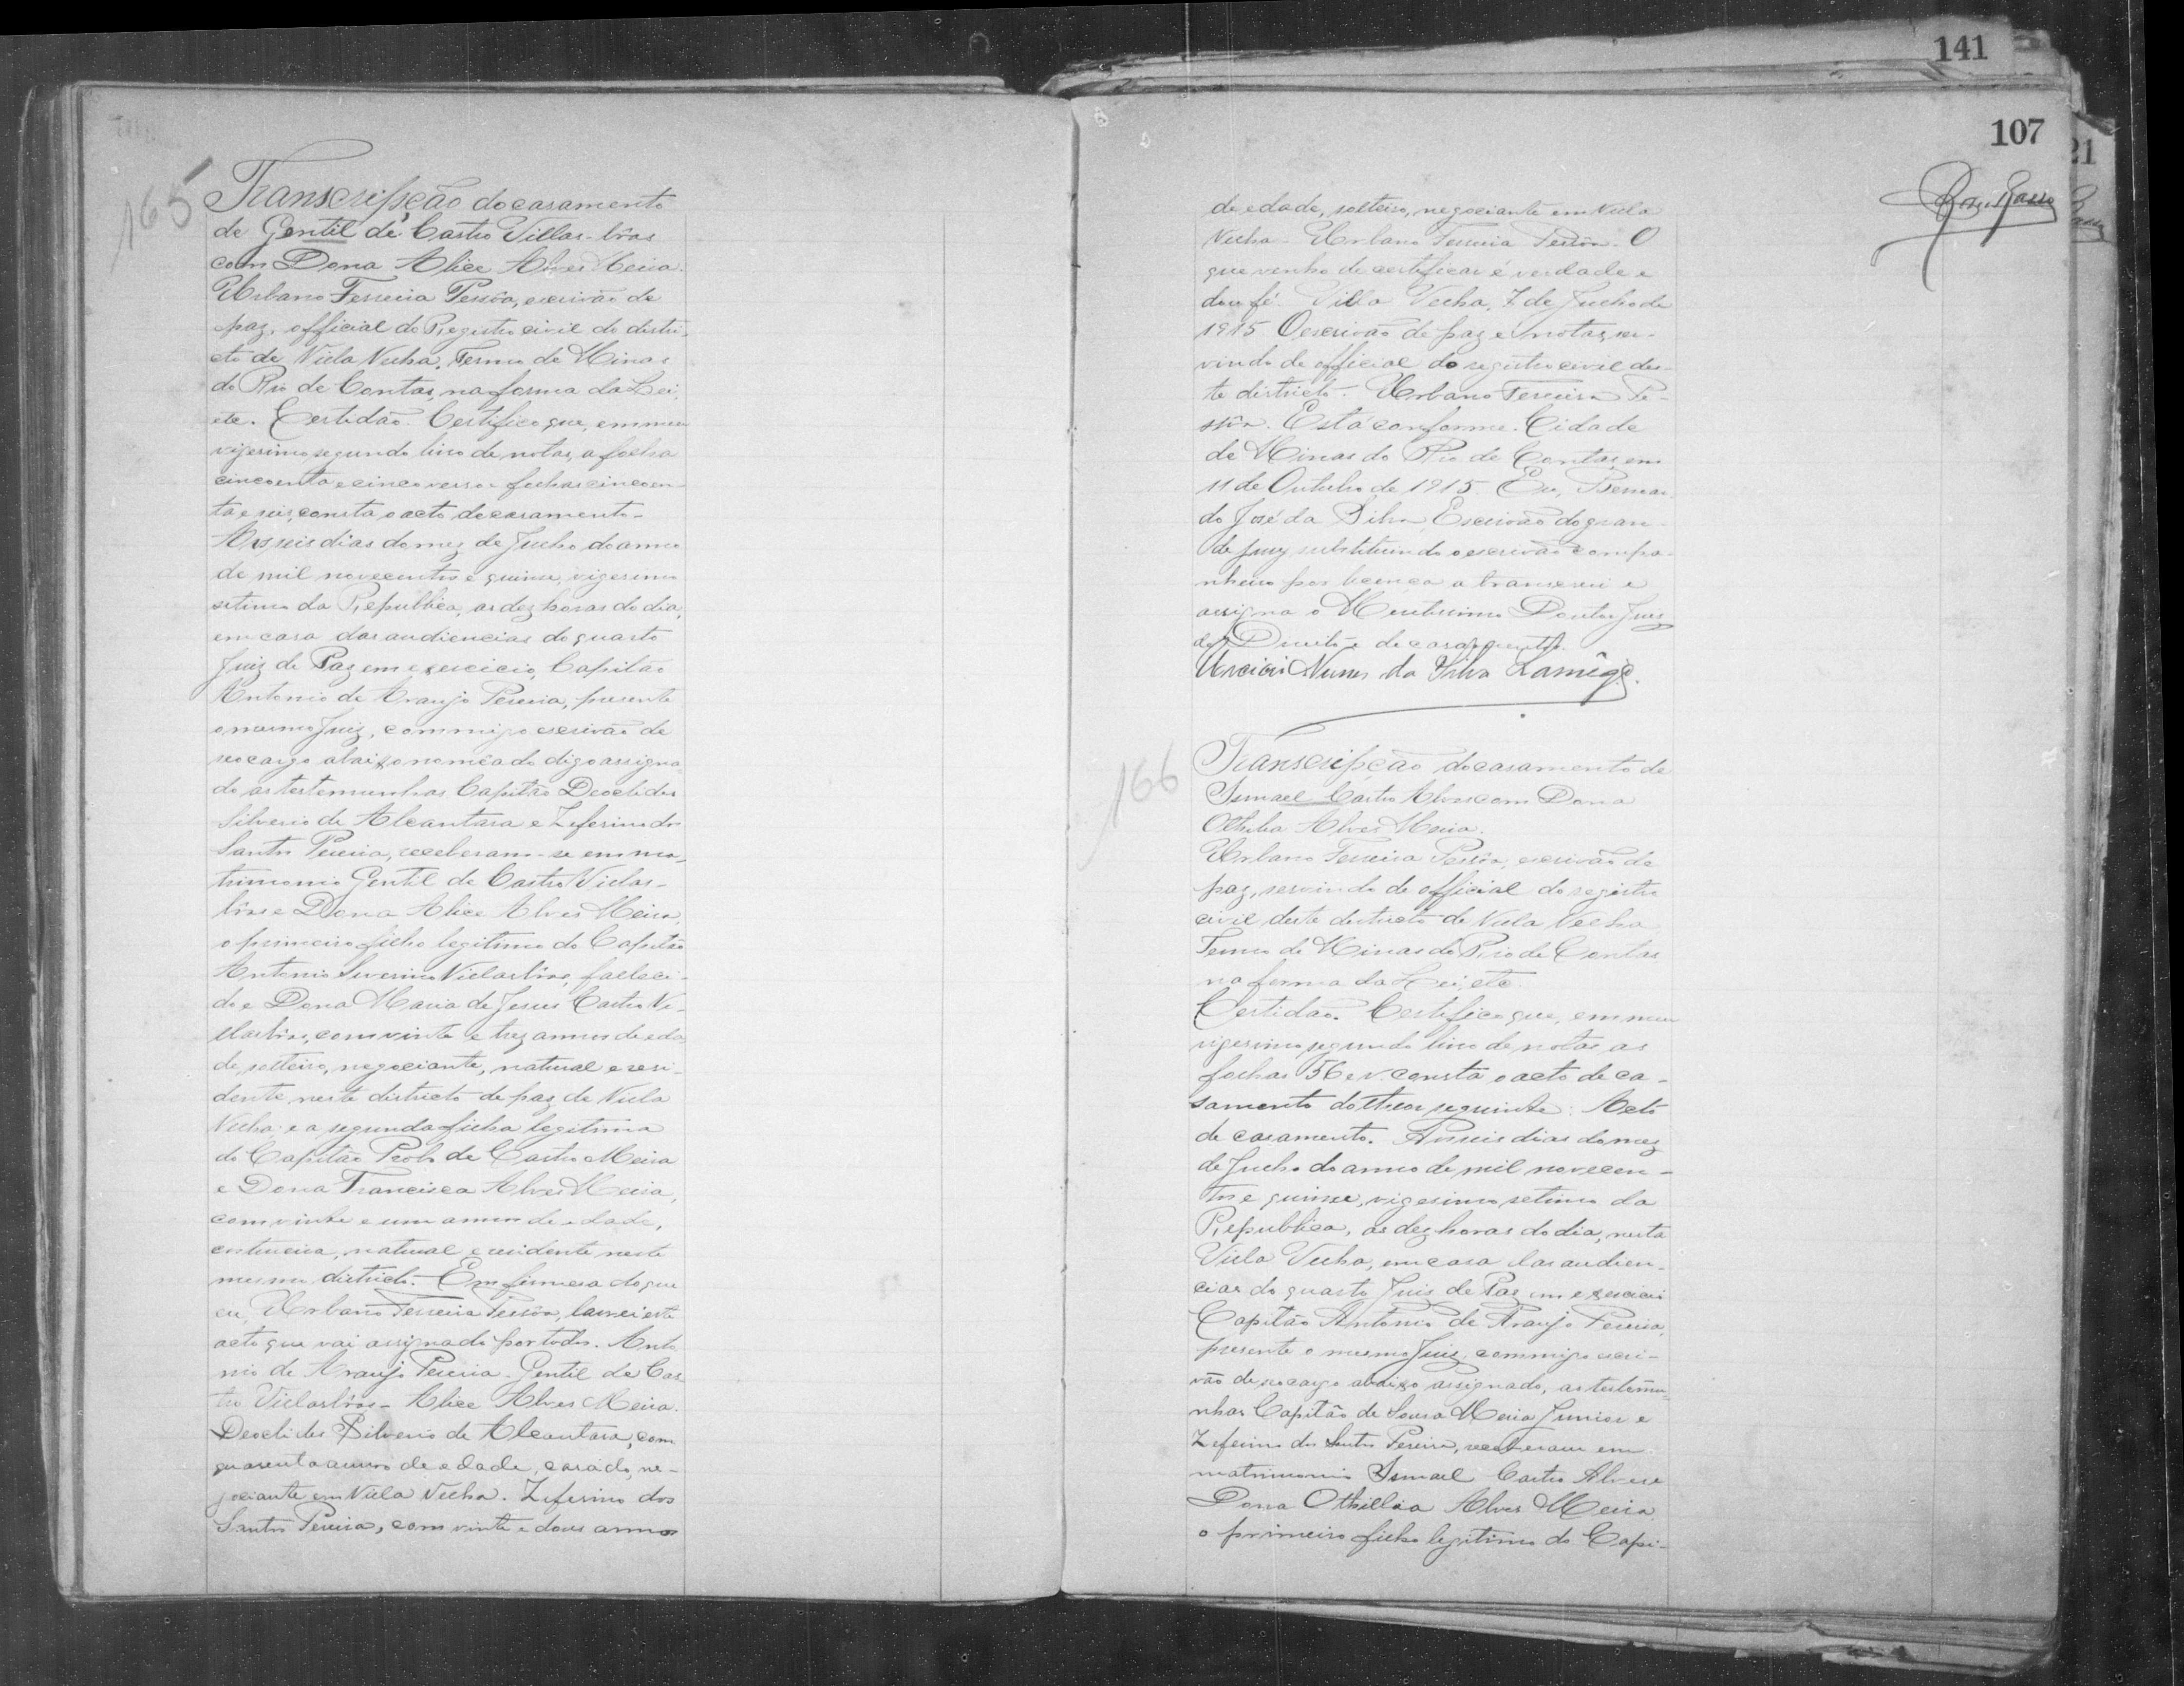 141
107
21
165
Transcripção do casamento
de Gentil de Castro Villas-bôas
com Dona Alice Alves Meira.
Urbano Ferreira Pessôa, escrivão de
paz, official do Registro civil do distri-
cto de Villa Velha, Termo de Minas
do Rio de Contas, na forma da Lei,
etc. Certidão. Certifico que, em meu
vigesimo segundo livro de notas, a folha
cincoenta e cinco verso e folhas cincoen-
ta e seis, consta o acto de casamento-
Aos seis dias do mez de Julho do anno
de mil novecentos e quinse, vigesimo
setimo da Republica, as dez horas do dia,
em casa das audiencias do quarto
Juiz de Paz em exercicio, Capitão
Antonio de Araujo Pereira, presente
o mesmo Juiz, commigo escrivão de
seo cargo abaixo nomeado digo assigna-
do as testemunhas Capitão Deoclides
Silverio de Alcantara e Zeferino dos
Santos Pereira, receberam-se em ma-
trimonio Gentil de Castro Villas-
bôas e Dona Alice Alves Meira,
o primeiro filho legitimo do Capitão
Antonio Severino Villasbôas, falleci-
do e Dona Maria de Jesus Castro Vi-
llasbôas, com vinte e trez annos de eda
de, solteiro, negociante, natural e resi-
dente neste districto de paz de Villa
Velha e a segunda filha legitima
do Capitão de Castro Meira
e Dona Francisca Alves Meira,
com vinte e um annos de edade,
custureira, natural e residente neste
mesmo districto. Em firmesa do que
eu, Urbano Ferreira Pessôa, lavrei este
acto que vai assignado por todos. Anto
nio de Araujo Pereira. Gentil de Cas
tro Villasbôas- Alice Alves Meira.
Deoclides Silverio de Alcantara, com
quarenta annos de edade, casado, ne-
gociante em Villa Velha. Zeferino dos
Santos Pereira, com vinte e dous annos
de edade, solteiro, negociante em Villa
Velha- Urbano Ferreira Pessôa. O
que venho de certificar é verdade e
dou fé. Villa Velha, 7 de Julho de
1915 O escrivão de paz e notas, ser-
vindo de official do registro civil des-
te districto. Urbano Ferreira Pe-
ssôa. Está conforme. Cidade
de Minas do Rio de Contas, em
11 de Outubro de 1915. Eu, Bernar-
do José da Silva, Escrivão do gran-
de jury substituindo o escrivão compa-
nheiro por licença a transcrevi e
assigna o Meritissimo Doutor Juiz
de Direito e de casamentos.
Nunes da Silva
166
Transcripção do casamento de
Ismael Castro Alves com Dona
Othilia Alves Meira.
Urbano Ferreira Pessôa, escrivão de
paz, servindo de official do registro
civil deste districto de Villa Velha
Termo de Minas do Rio de Contas
na forma da Lei, etc.
Certidão. Certifico que, em meu
vigesimo segundo livro de notas as
folhas 56 e v. consta o acto de ca-
samento do theor seguinte: Acto
de casamento. Aos seis dias do mez
de Julho do anno de mil novecen-
tos e quinse, vigesimo setimo da
Republica, as dez horas do dia, nesta
Villa Velha, em casa das audien-
cias do quarto Juiz de Paz em exercicio
Capitão Antonio de Araujo Pereira,
presente o mesmo Juiz, commigo escri-
vão de seo cargo abaixo assignado, as testemu-
nhas Capitão de Sousa Meira Junior e
Zeferino dos Santos Pereira, receberam em
matrimonio Ismael Castro Alves e
Dona Othillia Alves Meira
o primeiro filho legitimo do Capi-